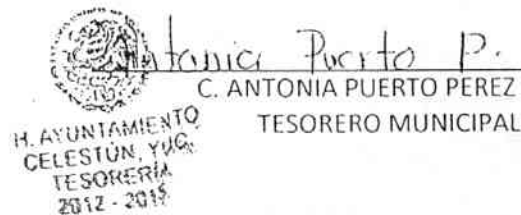 Antonia Puerto P.
C. ANTONIA PUERTO PEREZ
TESORERO MUNICIPAL
H. AYUNTAMIENTO
CELESTÚN, YUC.
TESORERÍA
2012 - 2015